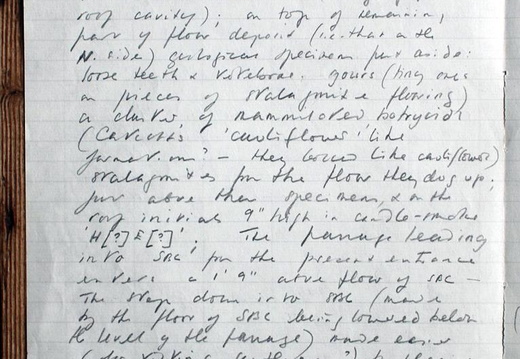 roof cavity); on top of remain,
part of floor deposit (i.e. that on the
N. side) geological specimens put aside:
loose teeth & gours (tiny ones
on pieces of stalagmite flooring)
a cluster of mammilated botryoids
('cauliflower' like
formations? – they looked like cauliflower)
stalagmites from the floor they dug up;
just above these specimens, & on the
roof initials 9" high in candle-smoke
'H[?]E[?]'; The passage leading
into SBC from the present entrance
enters a 1' 9" above floor of SBC –
The step down into SBC (made
by the floor of SBC being lowered below
the level of the passage) made easier